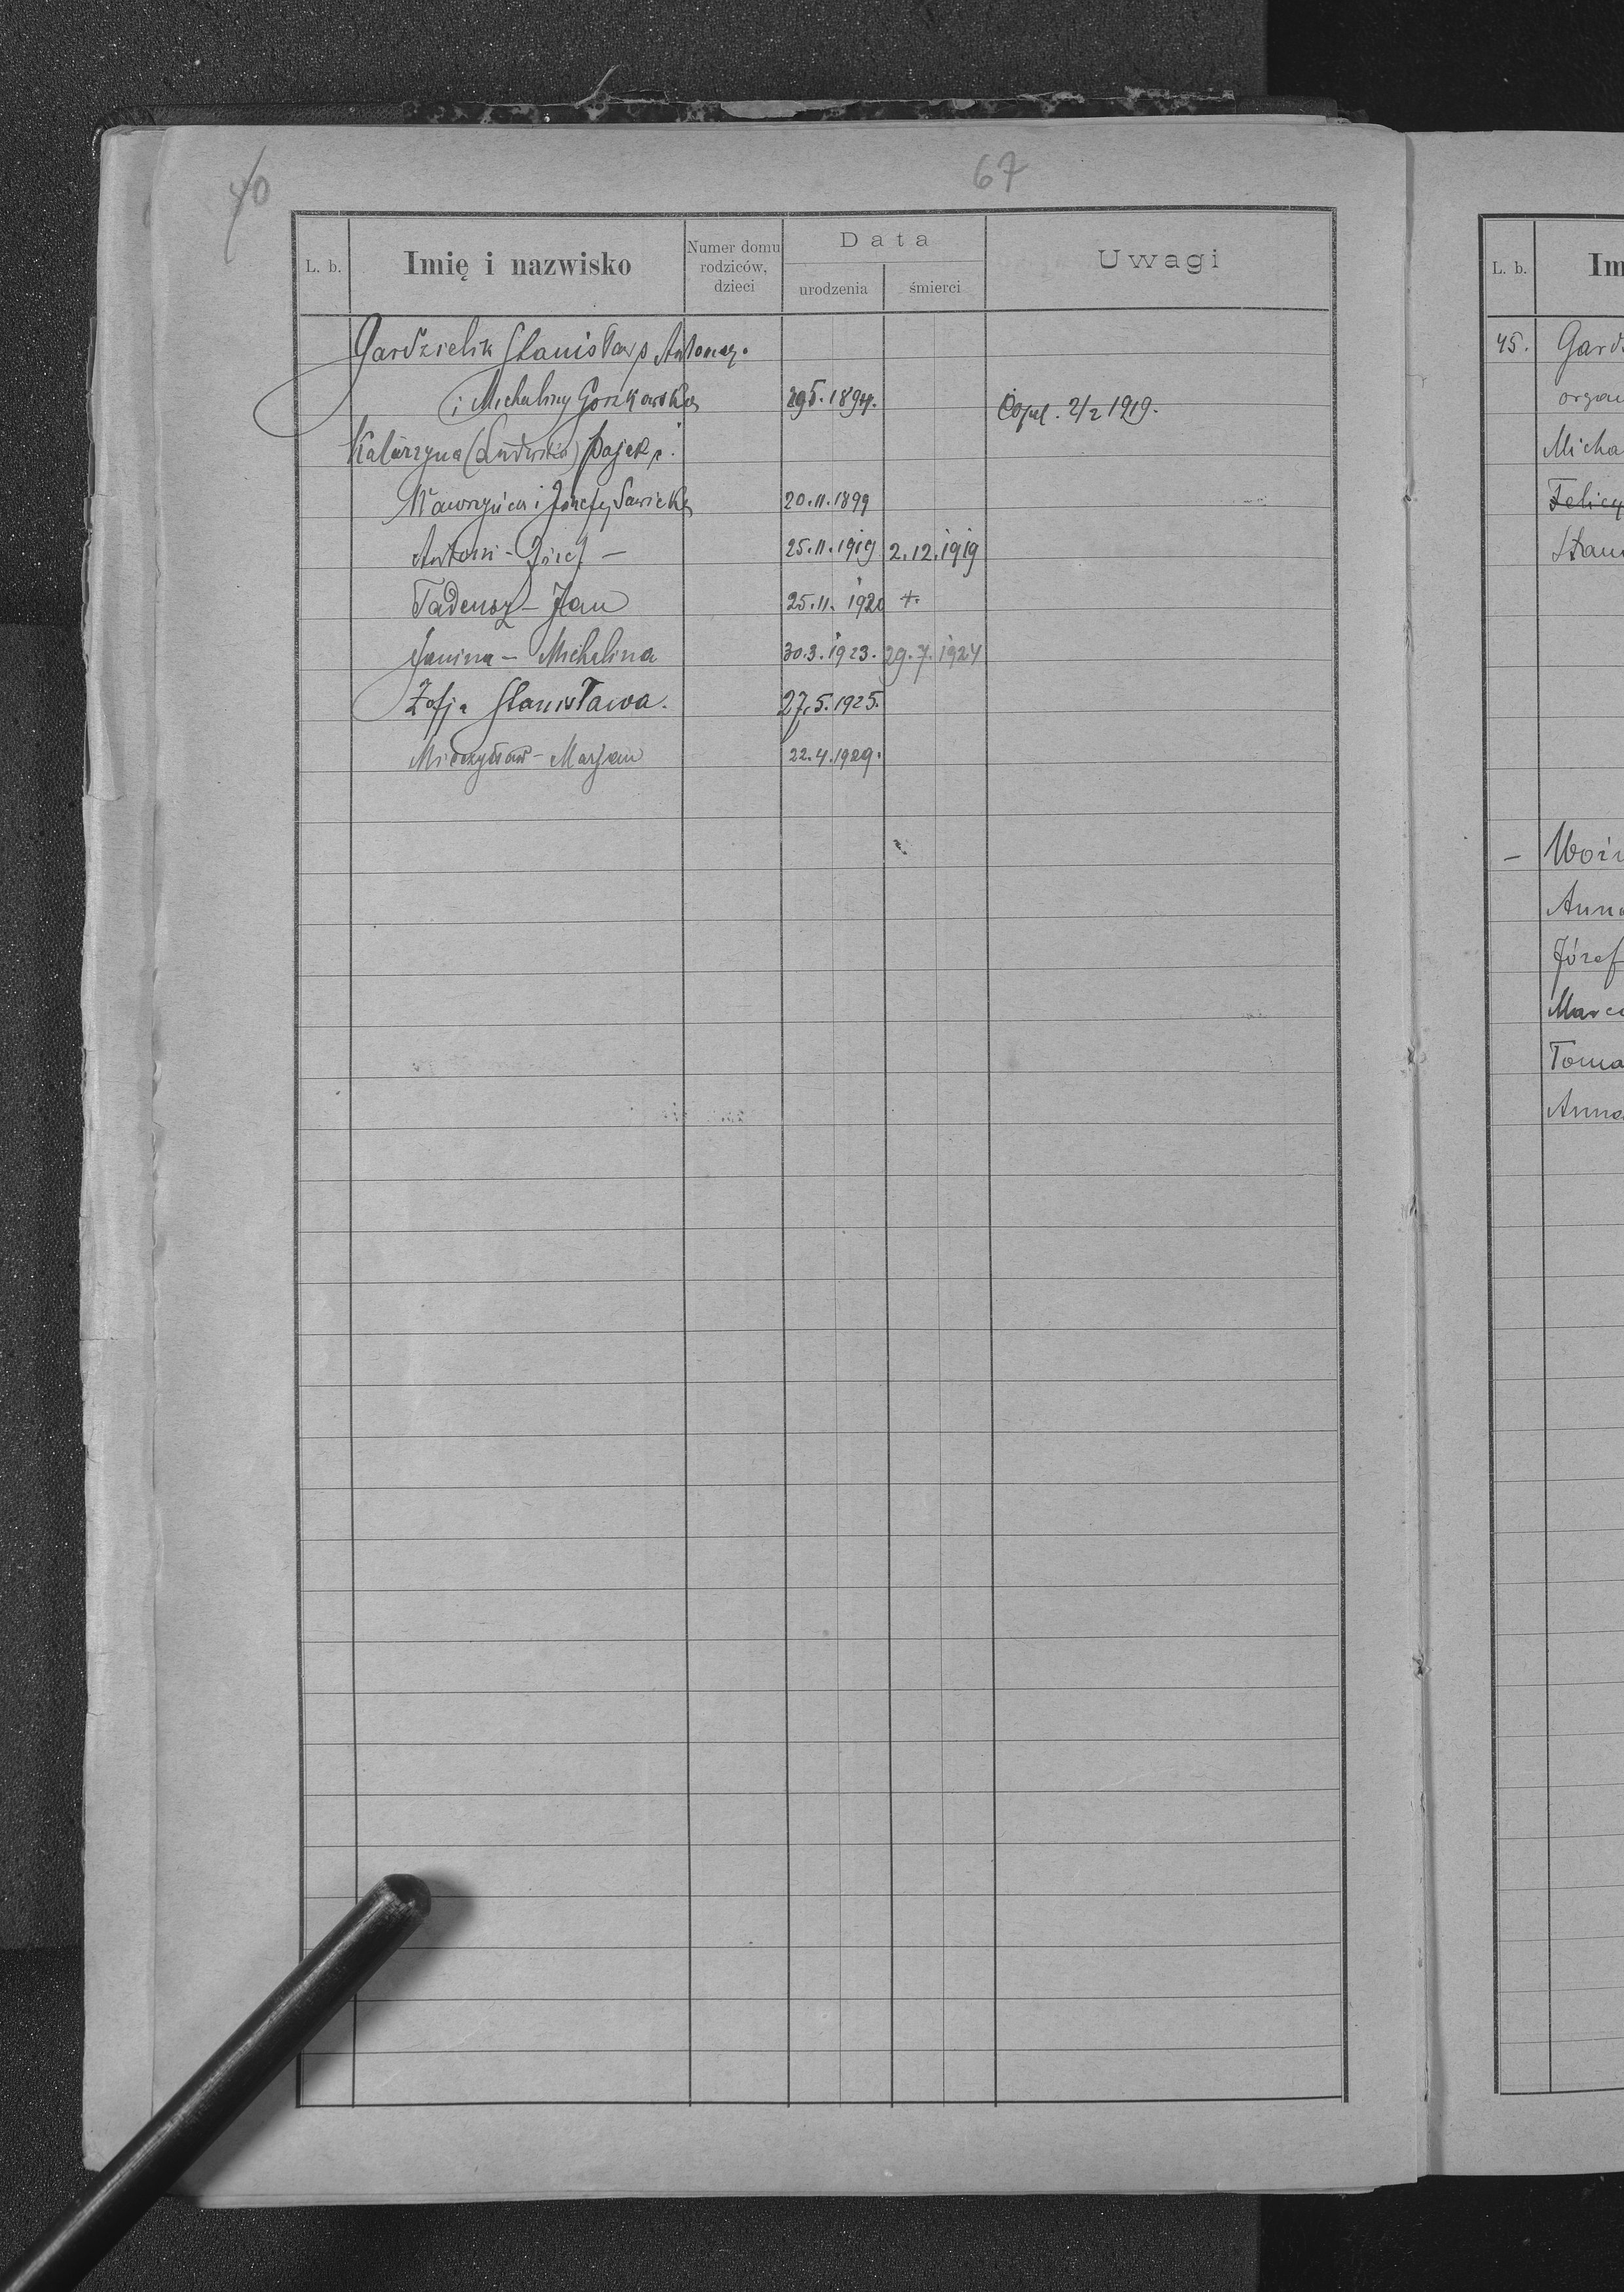 40
67
L. b.
Imię i nazwisko
Numer domu rodziców, dzieci
Data
urodzenia
śmierci
Uwagi
Gardzielik Stanisław s. Antoniego.
i Michaliny Gorzkowska 29.5.1894. Copul. 2/2 1919.
Katarzyna (Ludwika) Pająk c.
Wawrzyńca i Józefy Sawicka 20.11.1899
Antoni - Józef - 25.11.1919 2.12.1919
Tadeusz - Jan 25.11.1920 +.
Janina - Michalina 30.3.1923. 29.7.1924
Zofja Stanisława. 27.5.1925.
Mieczysław - Marjan 22.4.1929.
L. b.
Im
45. Gard
orga
Micha
Felicy
Stani
-
Anna
Józef
Marc
Toma
Anna